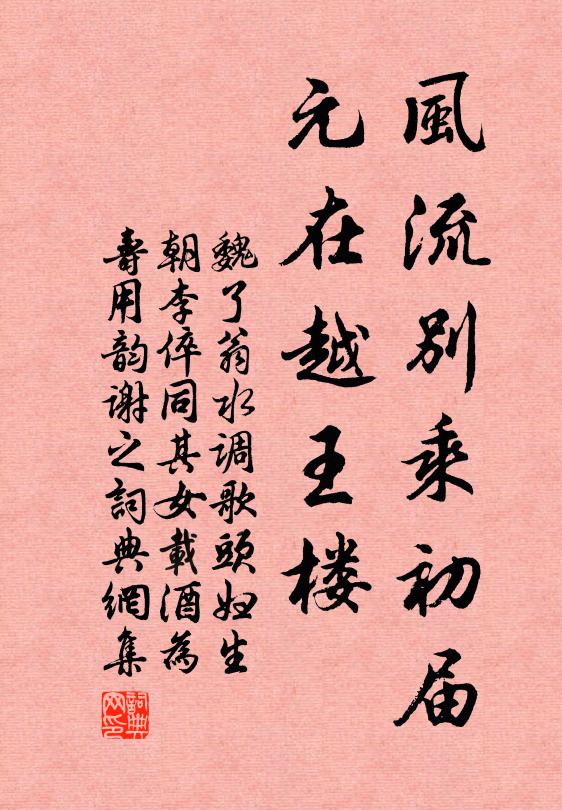 風流別乘初届
元在越王楼
魏了翁水调歌頭妇生
朝李倅同其女載酒為
壽用韵谢之詞典網集
詞典
网印